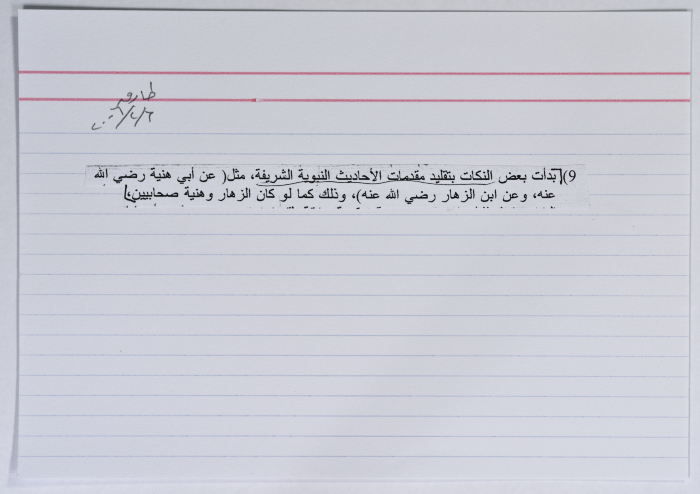 طارق
9)[بدأت بعض النكات بتقليد مقدمات الأحاديث النبوية الشريفة، مثل( عن أبي هنية رضي الله
عنه، وعن ابن الزهار رضي الله عنه)، وذلك كما لو كان الزهار وهنية صحابيين،]